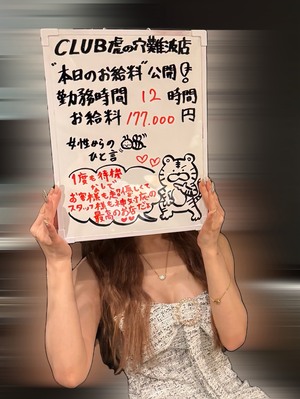 CLUB虎の穴難波店
"本日のお給料"公開!!
勤務時間 12時間
お給料 177.000円
女性からの
ひと言
1度も待機
なしで
お客様も超優しくて
スタッフ様も神対応の
最高のお店だよ